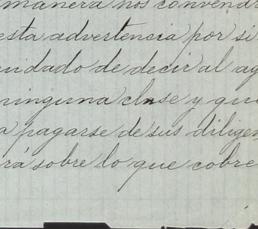 manera nos convendr
esta advertencia por si
cuidado de decir al ag
ninguna clase y que
a pagarse de sus diligen
rá sobre lo que cobre